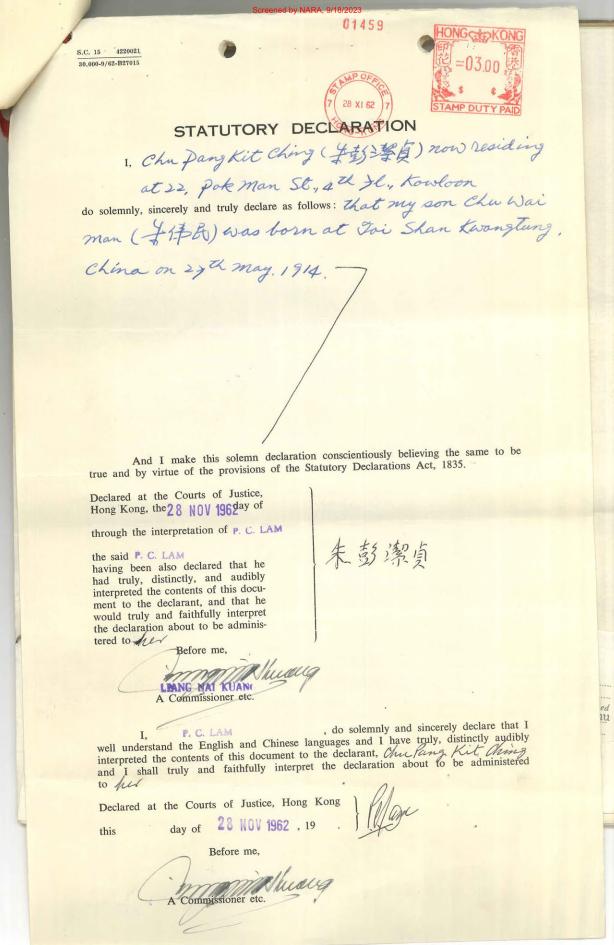 Screened by NARA, 9/18/2023
01459
S.C. 15 4220021
30,000-9/62-B27015
HONG KONG
印花
香港
=03.00
$ ¢
STAMP DUTY PAID
STAMP OFFICE
7 7
28 XI 62
STATUTORY DECLARATION
I, Chu Pang Kit Ching (朱彭潔貞) now residing
at 22, Pok Man St., 4th Fl., Kowloon
do solemnly, sincerely and truly declare as follows: that my son Chu Wai
man (朱偉民) was born at Toi Shan Kwangtung,
China on 27th May, 1914.
And I make this solemn declaration conscientiously believing the same to be
true and by virtue of the provisions of the Statutory Declarations Act, 1835.
Declared at the Courts of Justice,
Hong Kong, the 28 NOV 1962 day of
through the interpretation of P. C. LAM
the said P. C. LAM
having been also declared that he
had truly, distinctly, and audibly
interpreted the contents of this docu-
ment to the declarant, and that he
would truly and faithfully interpret
the declaration about to be adminis-
tered to her
朱彭潔貞
Before me,
LIANG NAI KUANG
A Commissioner etc.
I, P. C. LAM , do solemnly and sincerely declare that I
well understand the English and Chinese languages and I have truly, distinctly audibly
interpreted the contents of this document to the declarant, Chu Pang Kit Ching
and I shall truly and faithfully interpret the declaration about to be administered
to her
Declared at the Courts of Justice, Hong Kong
this day of 28 NOV 1962 , 19 .
Before me,
A Commissioner etc.